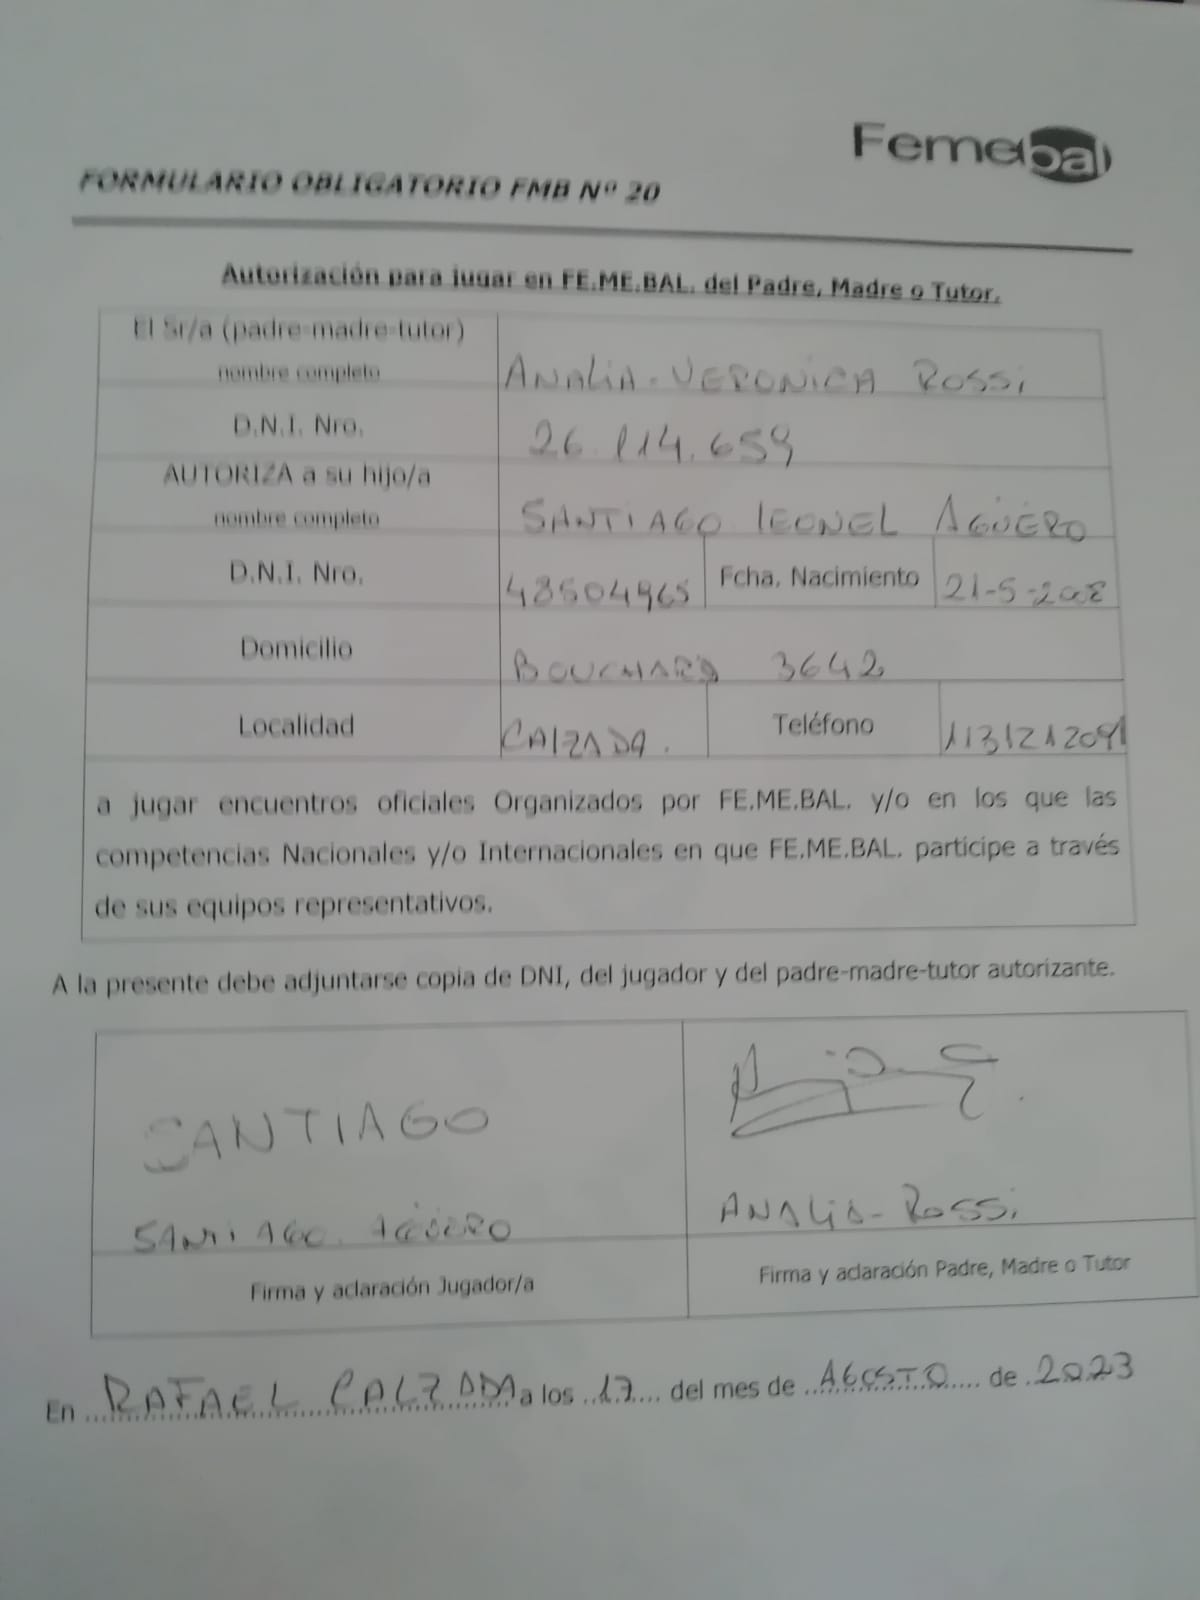 Femebal
FORMULARIO OBLIGATORIO FMB Nº 20
Autorización para jugar en FE.ME.BAL. del Padre, Madre o Tutor.
El Sr/a (padre-madre-tutor)
nombre completo
ANALIA - VERONICA ROSSi
D.N.I. Nro.
26.114.659
AUTORIZA a su hijo/a
nombre completo
SANTIAGO LEONEL AGÜERO
D.N.I. Nro.
48504965
Fcha. Nacimiento
21-5-2008
Domicilio
BOUCHARD 3642
Localidad
CALZADA.
Teléfono
1131212091
a jugar encuentros oficiales Organizados por FE.ME.BAL. y/o en los que las
competencias Nacionales y/o Internacionales en que FE.ME.BAL. participe a través
de sus equipos representativos.
A la presente debe adjuntarse copia de DNI, del jugador y del padre-madre-tutor autorizante.
SANTIAGO
SANTIAGO. AGÜERO
ANALIA - ROSSi
Firma y aclaración Jugador/a
Firma y aclaración Padre, Madre o Tutor
En RAFAEL CALZADA a los ..17.... del mes de ..AGOSTO.... de .2023